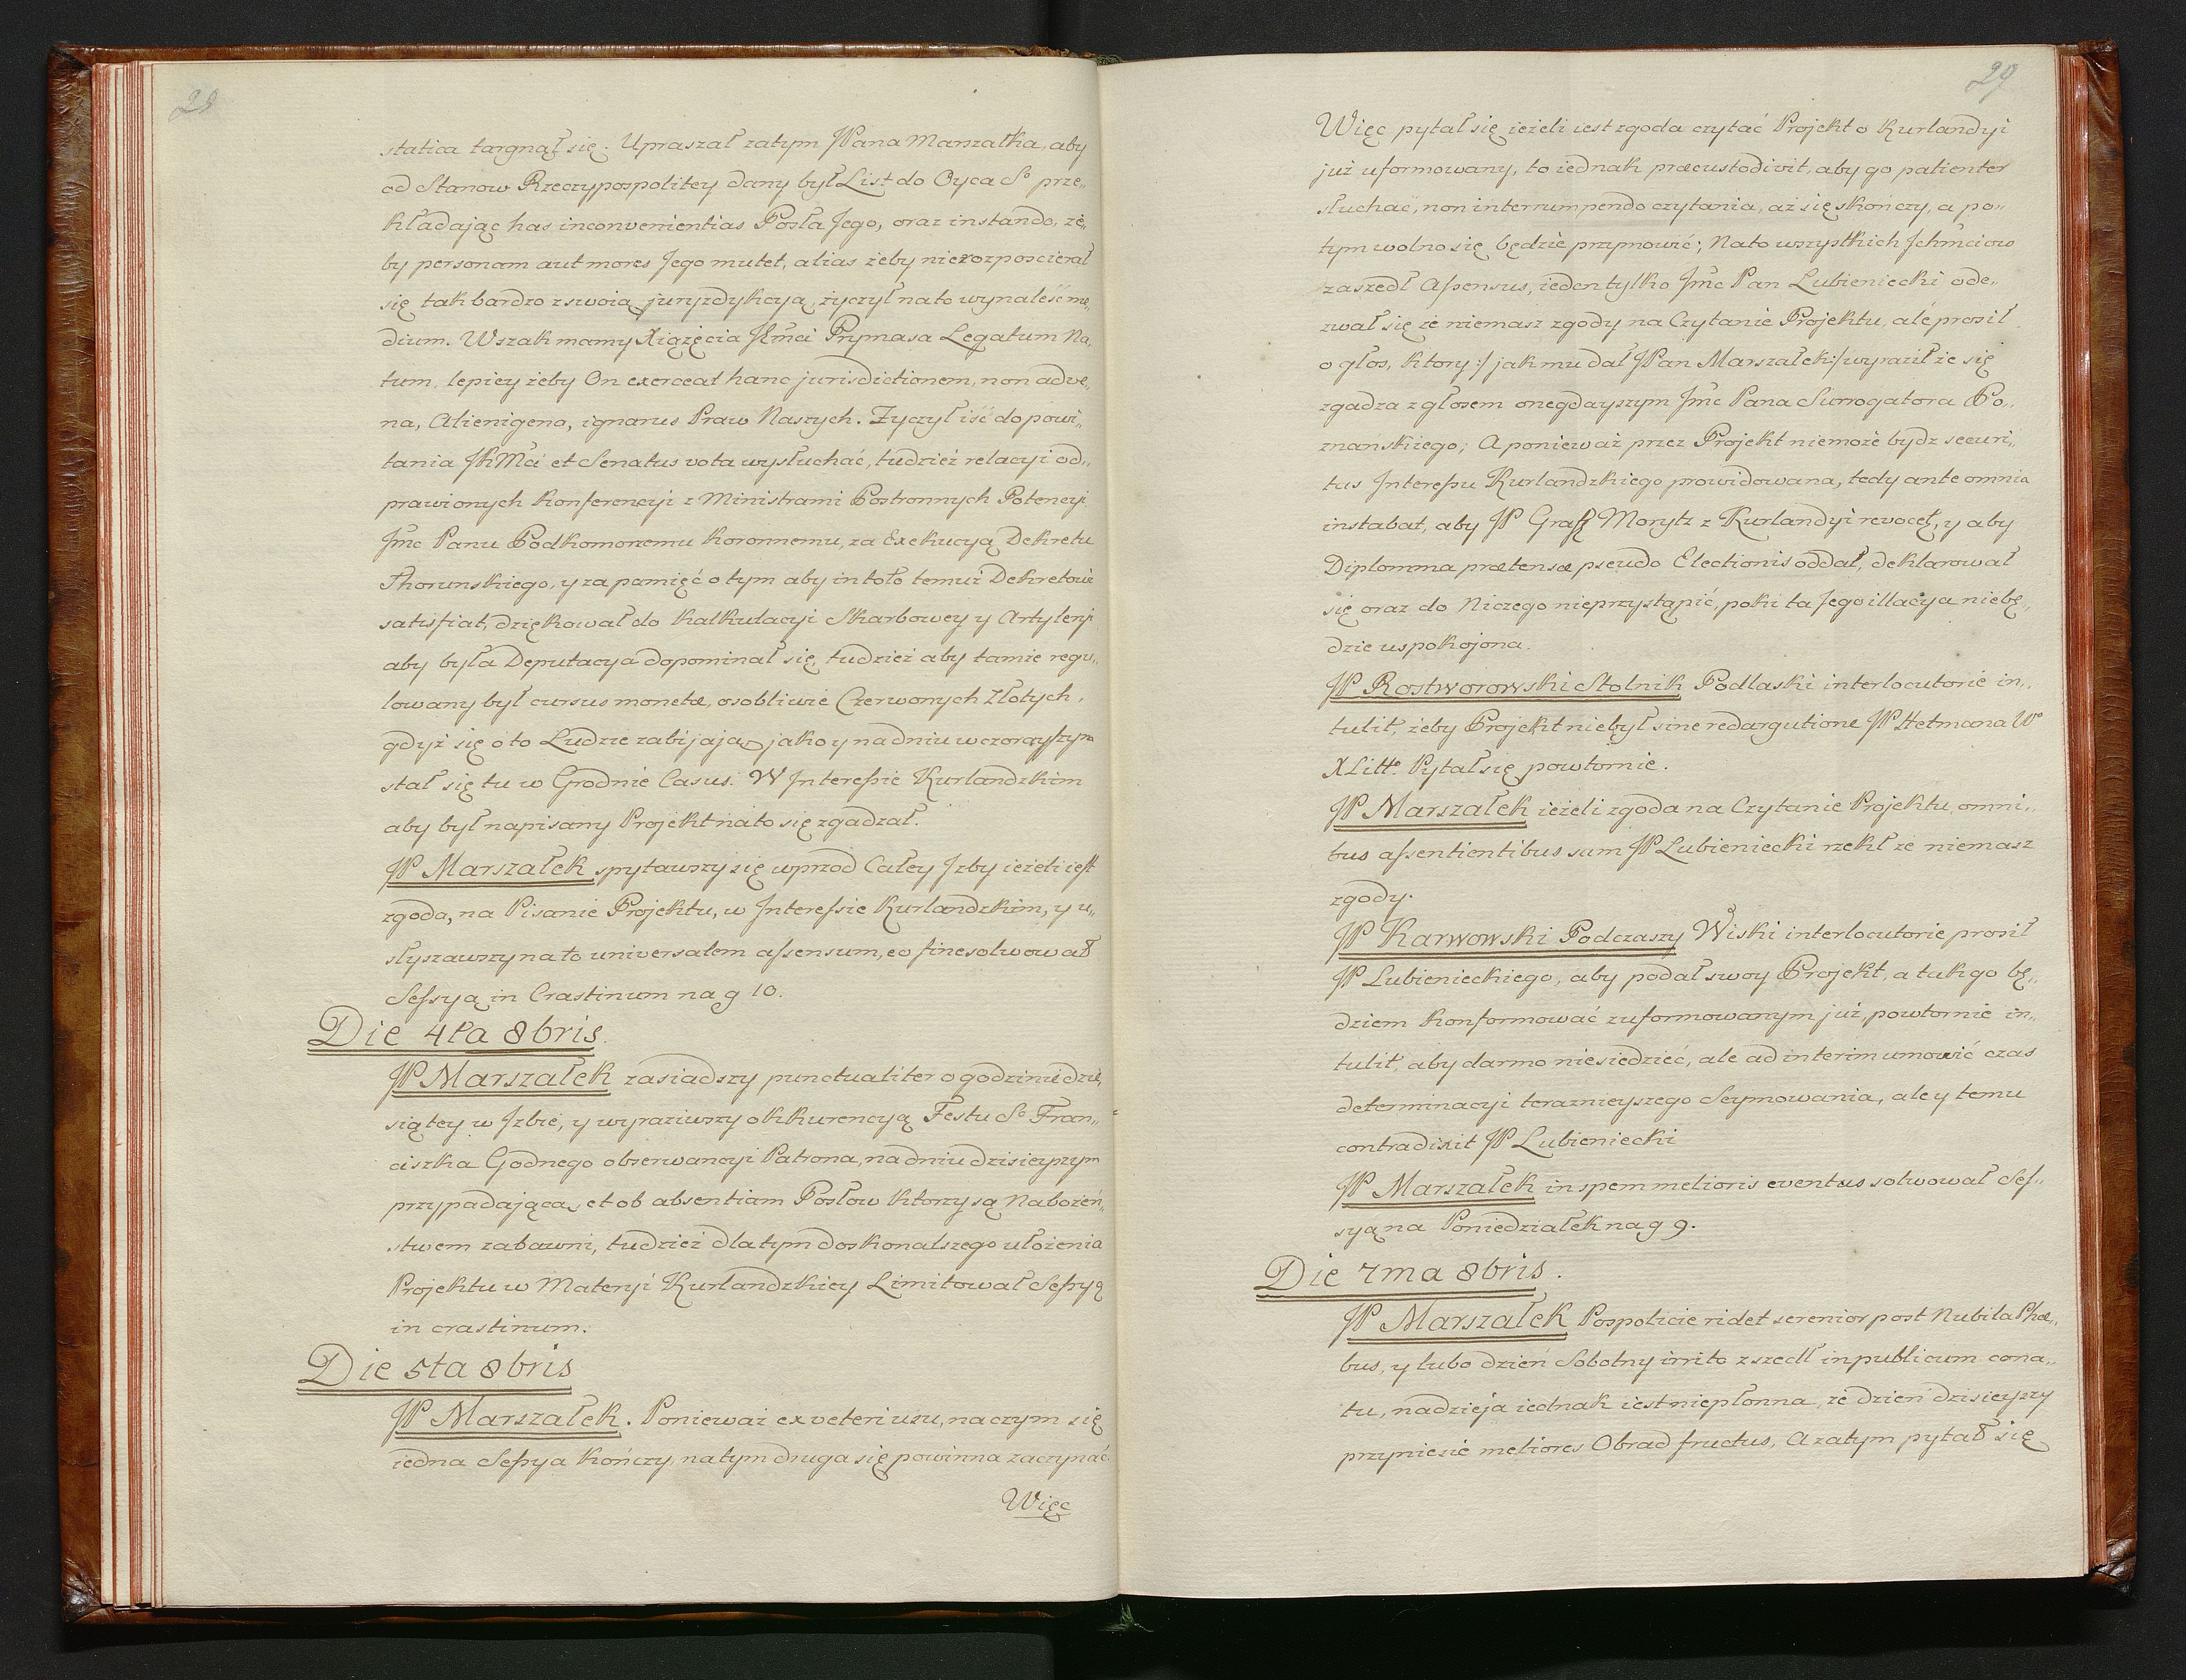 28
statica targnął się. Upraszał zatym JPana Marszałka, aby
od Stanow Rzeczypospolitey dany był List do Oyca So prze„
kładając has inconvenientias Posła Jego, oraz instando, że„
by personam aut mores Jego mutet, alias żeby nierozposcierał
się tak bardzo zswoią juryzdykcyą, życzył nato wynaleść me„
dium. Wszak mamy Xiążęcia Jmci Prymasa Legatum Na„
tum, lepiey żeby On exerceat hanc jurisdictionem, non adve„
na, Alienigena, ignarus Praw Naszych. Zyczył iść do powi„
tania JKMci et Senatus vota wysłuchać, tudzież relacyi od„
prawionych Konferencyi z Ministrami Postronnych Potencyi
Jmc Panu Podkomorzemu Koronnemu, za Exekucyą Dekretu
Thorunskiego, y za pamięć o tym aby in toto temuż Dekretowi
satisfiat, dziękował do Kalkulacyi Skarbowey y Artyleryi
aby była Deputacya dopominał się, tudzież aby tamże regu„
lowany był cursus monetæ, osobliwie Czerwonych Złotych,
gdyż się oto Ludzie zabijają jako y nadniu wczorayszym
stał się tu w Grodnie Casus. W Interessie Kurlandzkim
aby był napisany Projekt nato się zgadzał.
JP Marszałek spytawszy się wprzod Całey Jzby ieżeli iest
zgoda, na Pisanie Projektu, w Interessie Kurlandzkim, y u„
słyszawszy nato universalem assensum, eo fine solwował
Sessyą in Crastinum na g 10.
Die 4ta 8bris.
JP Marszałek zasiadszy punctualiter o godzinie dzie„
siątey w Jzbie, y wyraziwszy okkurencyą Festu So Fran„
ciszka Godnego obserwancyi Patrona, nadniu dzisieyszym
przypadającą, et ob absentiam Posłow ktorzy są Nabożeń„
stwem zabawni, tudzież dla tym doskonalszego ułożenia
Projektu w Materyi Kurlandzkiey Limitował Sessyą
in crastinum.
Die 5ta 8bris
JP Marszałek. Ponieważ ex veteri usu, na czym się
iedna Sessya kończy, natym druga się powinna zaczynać
Więc
29
Więc pytał się ieżeli iest zgoda czytać Projekt o Kurlandyi
już uformowany, to iednak præcustodivit, aby go patienter
słuchać, non interrumpendo czytania, aż się skończy, a po„
tym wolno się będzie przymowić; Nato wszystkich Jchmciow
zaszedł Assensus, ieden tylko Jmc Pan Lubieniecki ode„
zwał się że niemasz zgody na Czytanie Projektu, ale prosił
o głos, ktory :/ jak mu dał JPan Marszałek :/ wyraził że się
zgadza z głosem onegdayszym Jmc Pana Surrogatora Po„
znanskiego; A ponieważ przez Projekt niemoże bydz securi„
tas Interessu Kurlandzkiego prowidowana, tedy ante omnia
instabat, aby JP Graff Morytz z Kurlandyi revocet, y aby
Diplomma prætensæ pseudo Electionis oddał, deklarował
się oraz do Niczego nieprzystąpić, poki ta Jego illacya niebę„
dzie uspokojona.
JP Rostworowski Stolnik Podlaski interlocutorie in„
tulit, żeby Projekt niebył sine redargutione JP Hetmana Wo
X Litto. Pytał się powtornie.
JP Marszałek ieżeli zgoda na Czytanie Projektu, omni„
bus assentientibus sum JP Lubieniecki rzekł że niemasz
zgody.
JP Karwowski Podczaszy Wiski interlocutorie prosił
JP Lubienieckiego, aby podał swoy Projekt, a tak go bę„
dziem konformować zuformowanym już, powtornie in„
tulit, aby darmo niesiedzieć, ale ad interim umowić czas
determinacyi teraznieyszego Seymowania, ale y temu
contradixit JP Lubieniecki
JP Marszałek in spem melioris eventus solwował Ses„
syą na Poniedziałek na g 9.
Die 7ma 8bris.
JP Marszałek Pospolicie ridet serenior post Nubila Phœ„
bus, y lubo dzień Sobotny irrito zszedł in publicum cona„
tu, nadzieja iednak iest niepłonna, że dzień dzisieyszy
przyniesie meliores Obrad fructus, A zatym pytał się